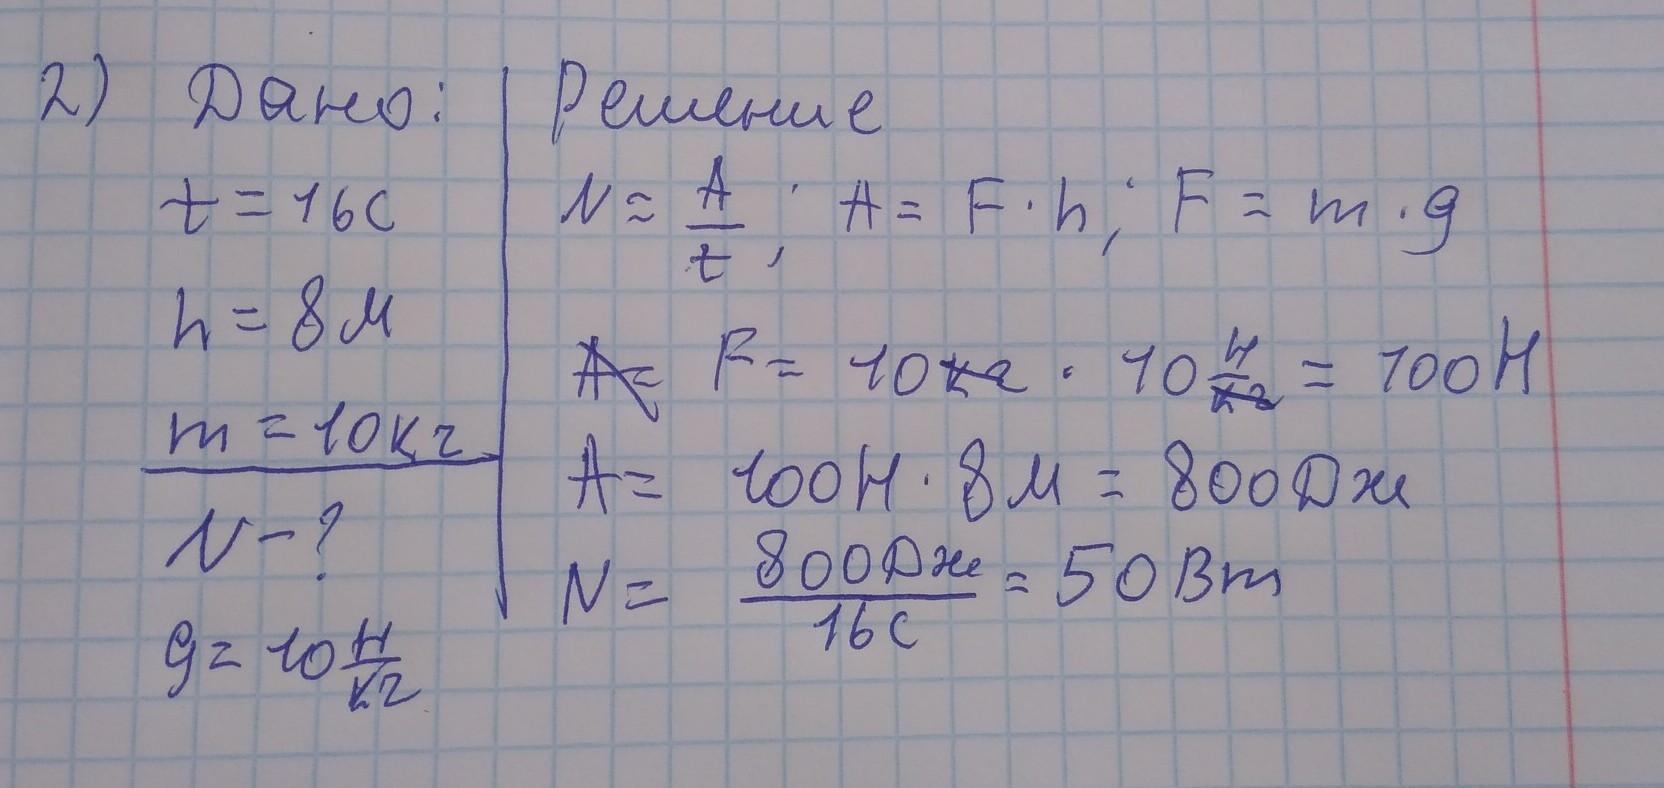 2) Дано:
t = 16с
h = 8м
m = 10кг
N - ?
g = 10 Н/кг
Решение
N = A/t; A = F · h; F = m · g
A = F = 10кг · 10 Н/кг = 100Н
A = 100Н · 8м = 800Дж
N = 800Дж/16с = 50Вт